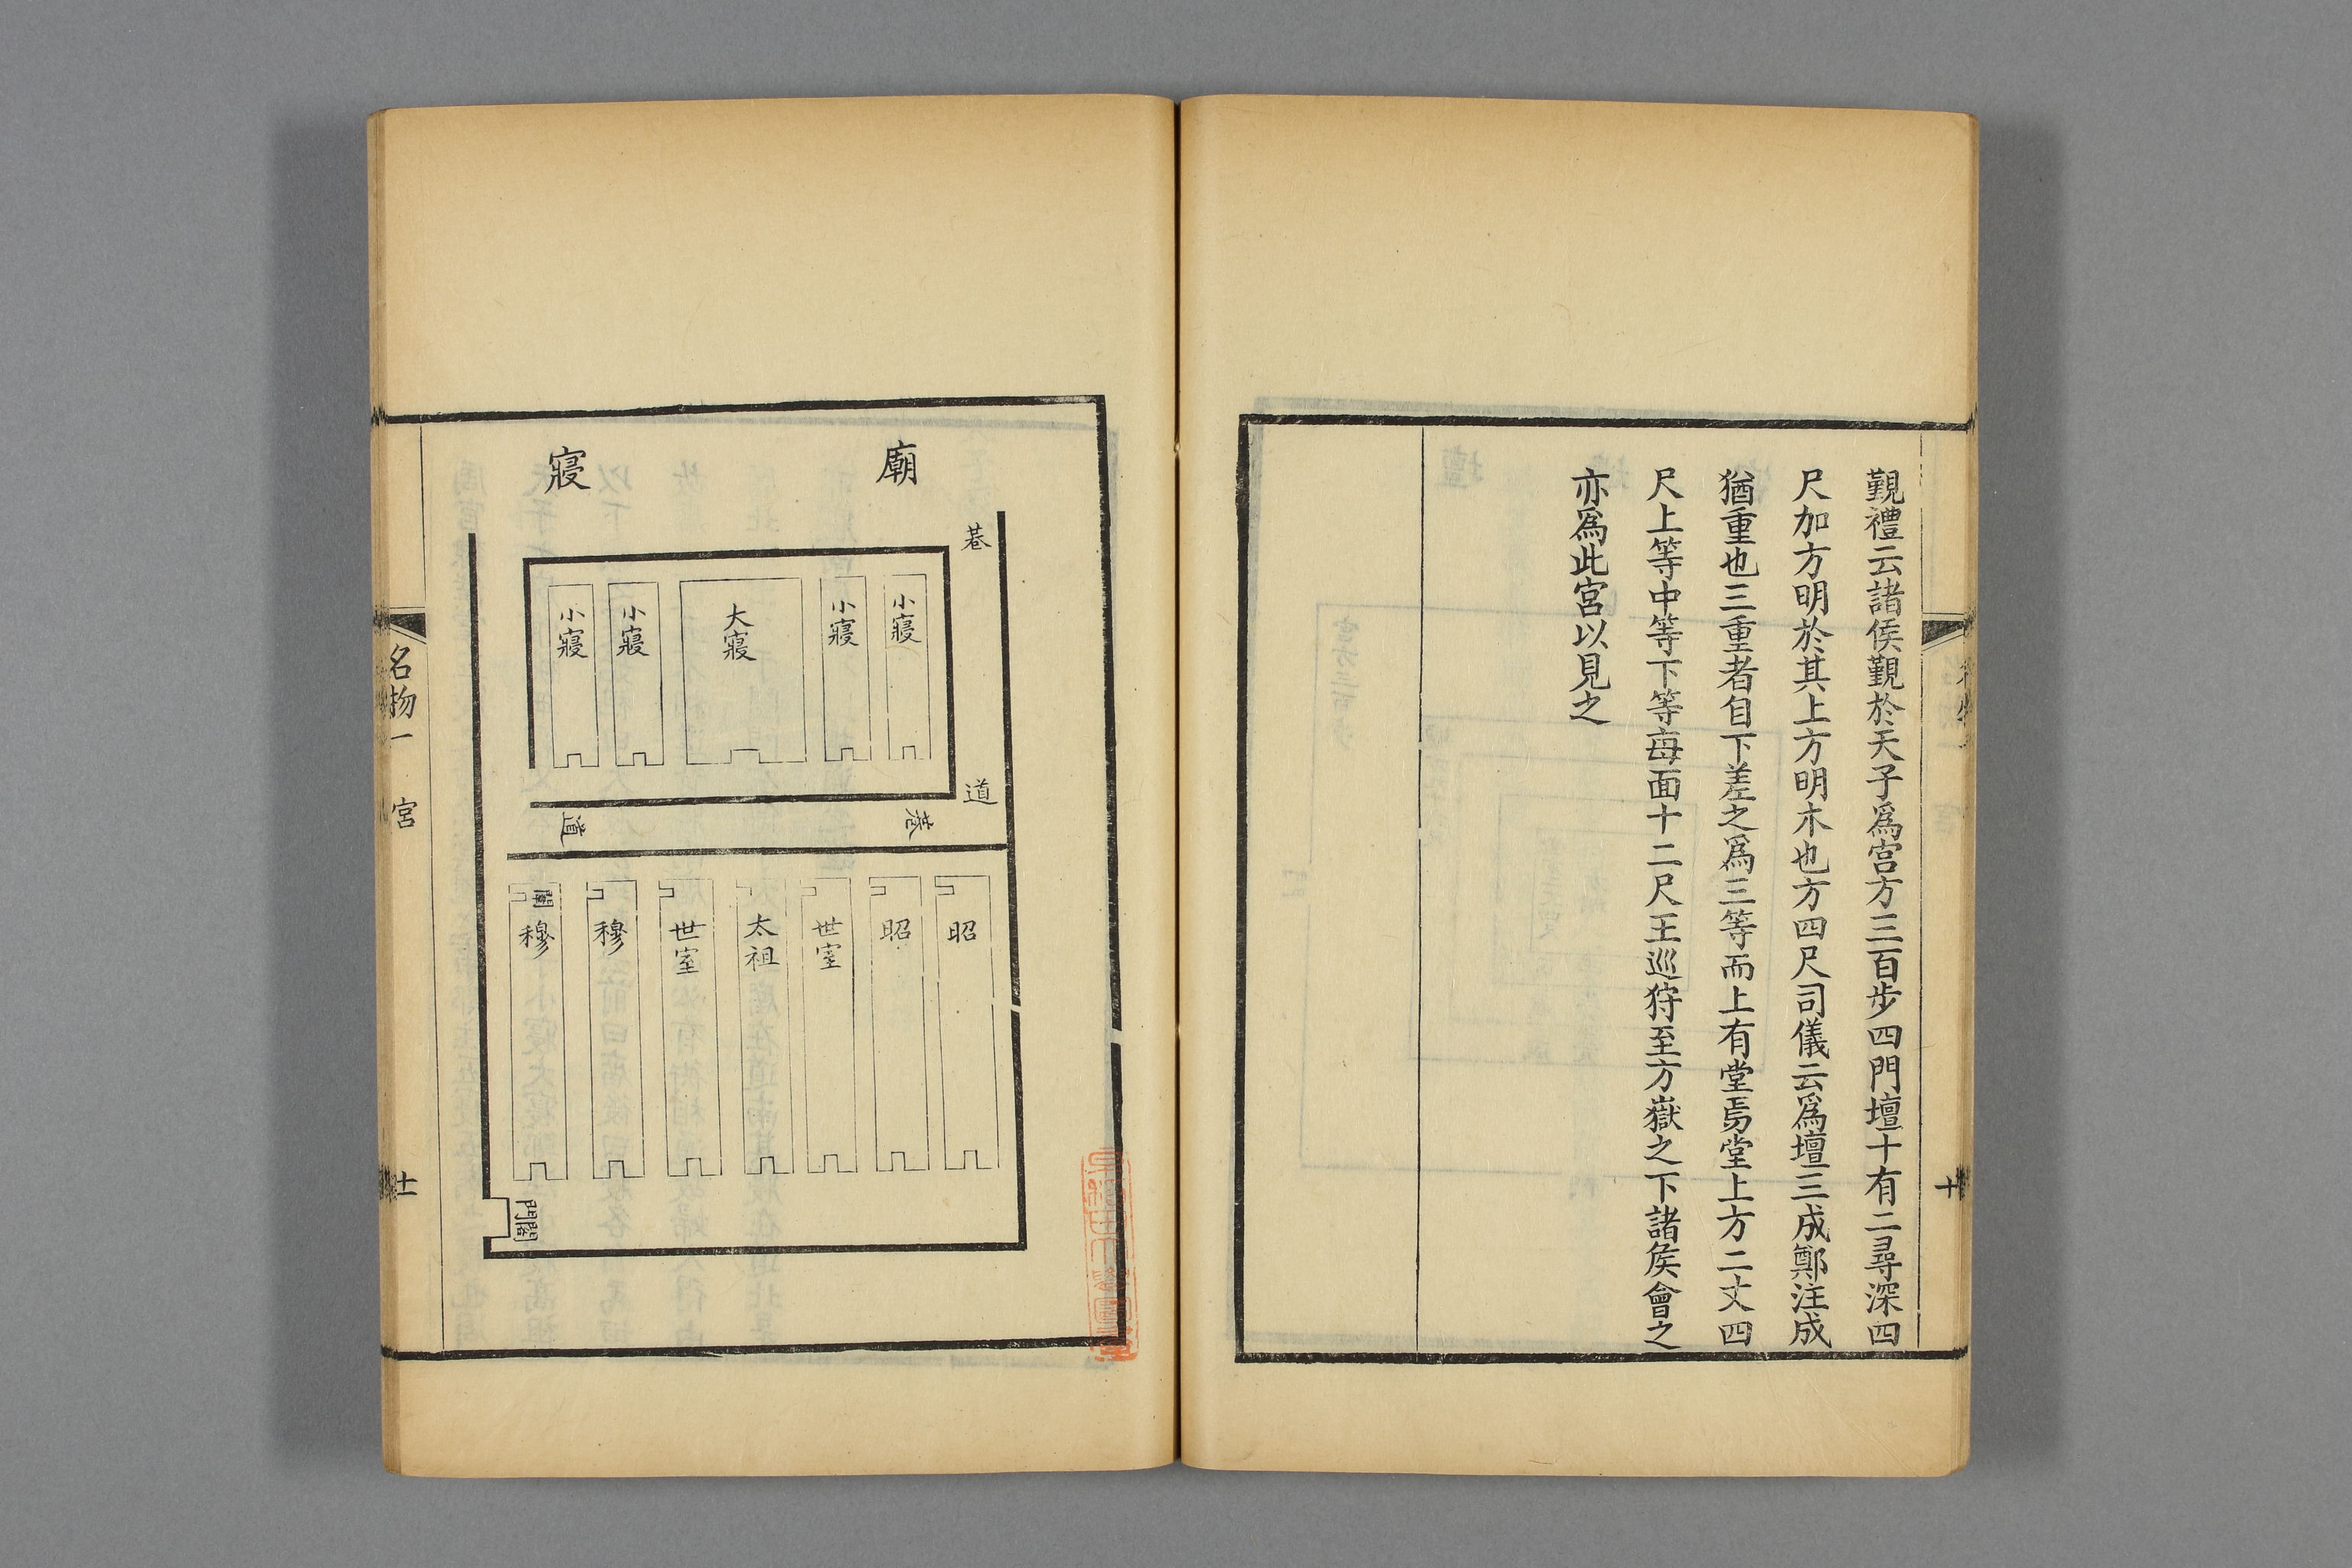 覲禮云諸侯覲於天子爲宮方三百步四門壇十有二尋深四
尺加方明於其上方明木也方四尺司儀云爲壇三成鄭注成
猶重也三重者自下差之爲三等而上有堂焉堂上方二丈四
尺上等中等下等每面十二尺王巡狩至方嶽之下諸侯會之
亦爲此宮以見之
十
廟
寢
巷
道
小寢
小寢
大寢
小寢
小寢
巷
道
昭
昭
世室
太祖
世室
穆
穆
闈
闈門
名物一
宮
十一